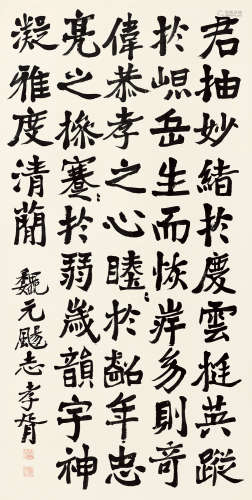 君抽妙緒於慶雲挺英蹤
於崐岳生而恢岸幼則奇
偉恭孝之心睦〻於齠年忠
亮之操蹇〻於弱歲韻宇神
凝雅度清蕑
魏元颺志 孝胥